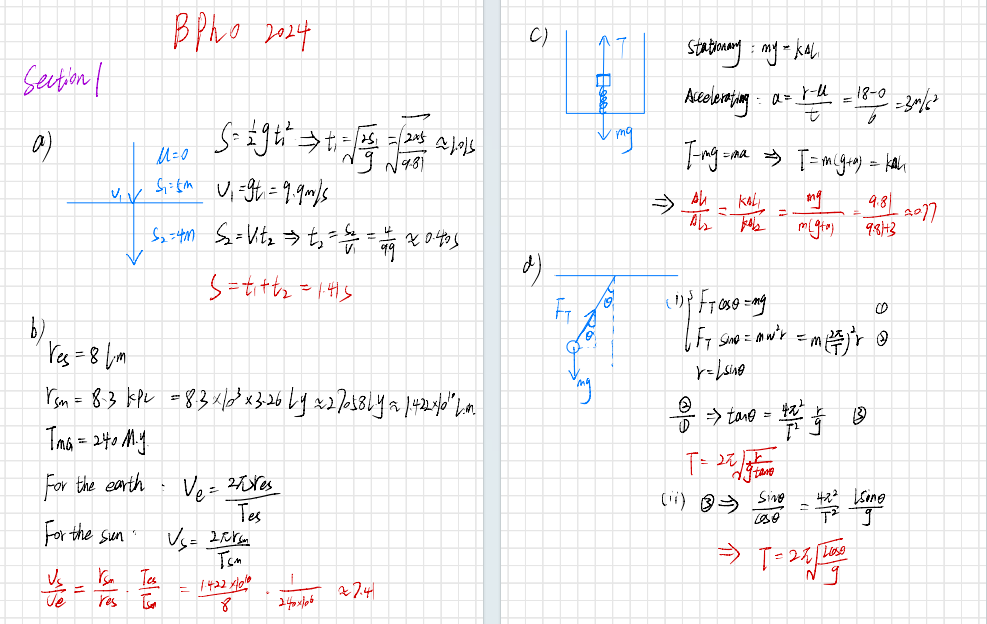 BPhO 2024
Section 1
a)
u=0
S₁=5m
V₁
S₂=4m
S=½gt₁² ⇒ t₁=√(2S₁/g) = √(2×5/9.81) ≈1.01s
V₁=gt₁=9.9m/s
S₂=Vt₂ ⇒ t₂=S₂/V₁=4/9.9 ≈ 0.40s
S=t₁+t₂=1.41s
b)
r_es = 8 l.m
r_sm = 8.3 kpc = 8.3×10³×3.26 ly ≈27058ly≈1.422×10¹⁰ l.m
T_MG = 240 M.y.
For the earth : Ve = 2πr_es/T_es
For the sun : Vs = 2πr_sm/T_sm
Vs/Ve = r_sm/r_es · T_es/T_sm = 1.422×10¹⁰/8 · 1/240×10⁶ ≈7.41
c)
T
mg
Stationary : mg = kΔL₁
Accelerating : a = v-u/t = 18-0/6 =3m/s²
T-mg=ma ⇒ T=m(g+a) = kΔL₁
⇒ ΔL₁/ΔL₂ = kΔL₁/kΔL₂ = mg/m(g+a) = 9.81/9.81+3 ≈0.77
d)
F_T
θ
θ
mg
(i) { F_T cosθ=mg ①
F_T sinθ=mw²r = m(2π/T)²r ②
r=Lsinθ
②/① ⇒ tanθ = 4π²/T² r/g ③
T = 2π√(r/gtanθ)
(ii) ③ ⇒ sinθ/cosθ = 4π²/T² Lsinθ/g
⇒ T=2π√(Lcosθ/g)